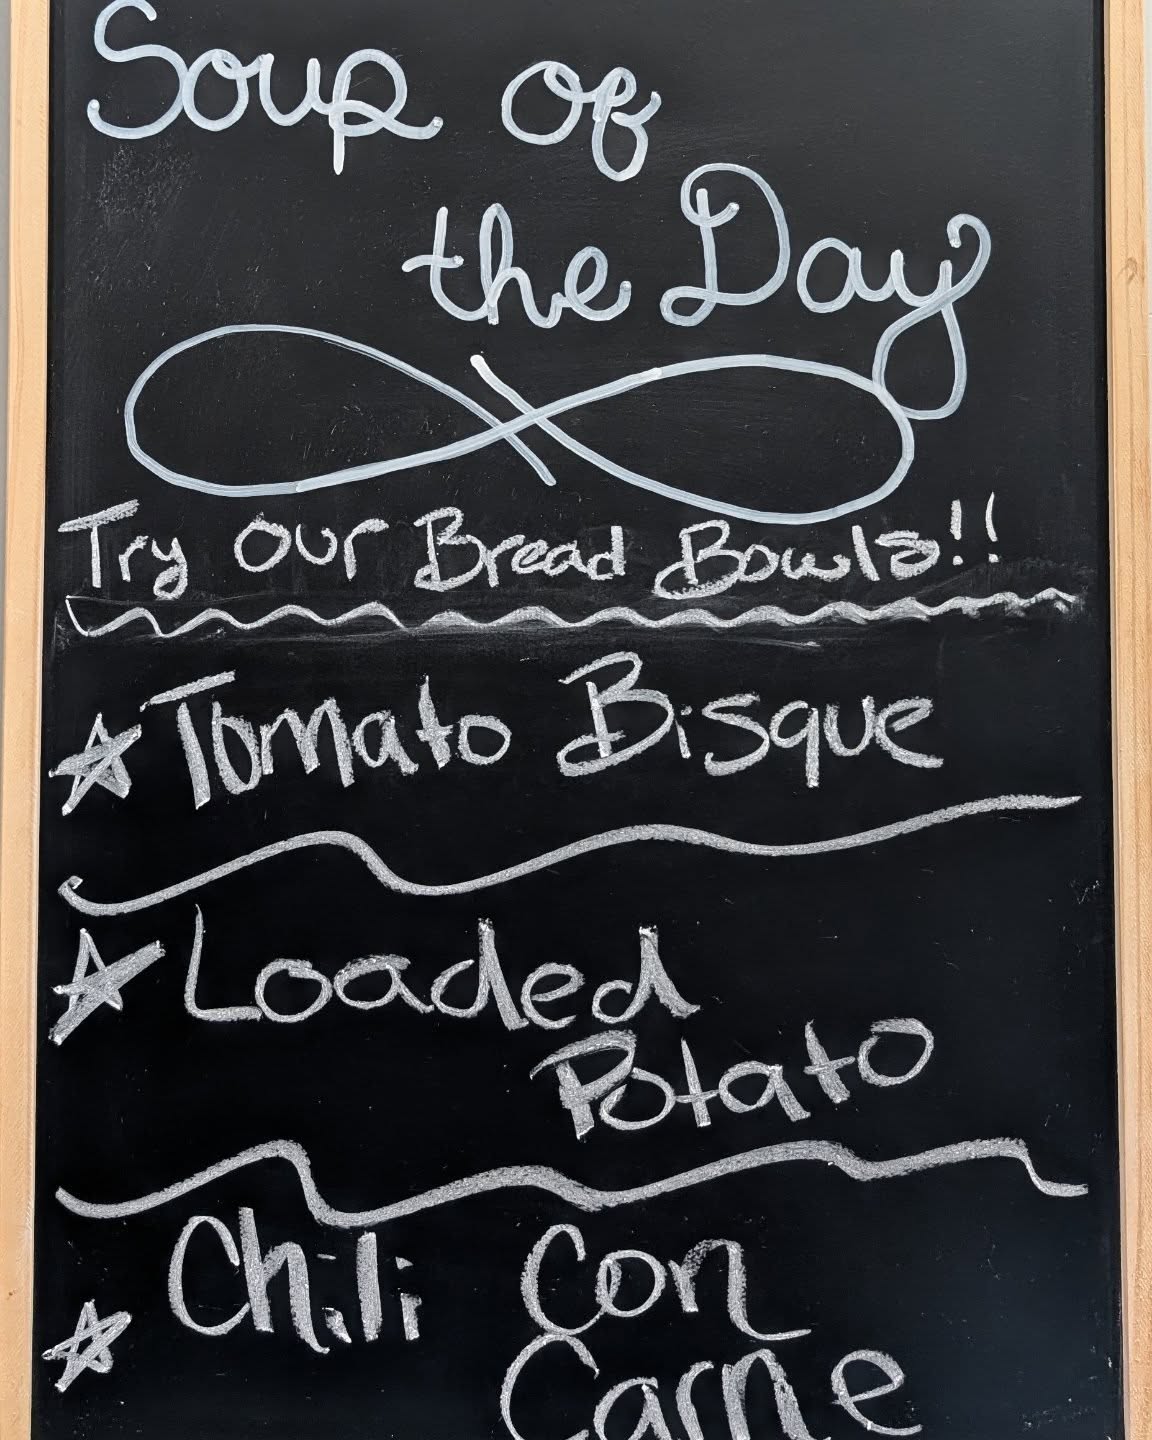 Soup of
the Day
Try our Bread Bowls!!
Tomato Bisque
Loaded
Potato
Chili Con
Carne